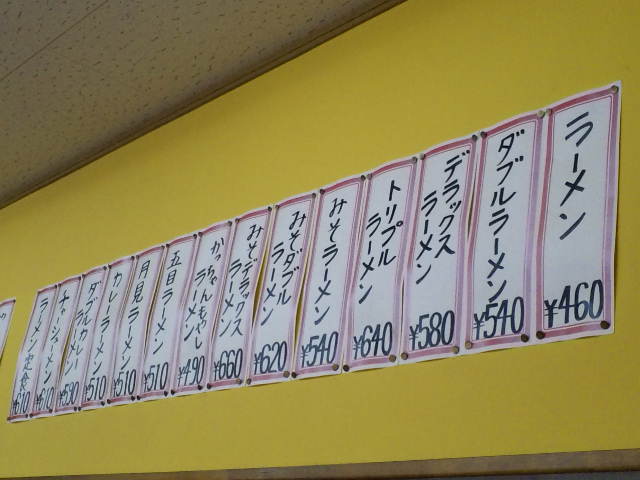 ラーメン
¥460
ダブルラーメン
¥540
デラックス
ラーメン
¥580
トリプル
ラーメン
¥640
みそラーメン
¥540
みそダブル
ラーメン
¥620
みそデラックス
ラーメン
¥660
かっちゃんもやし
ラーメン
¥490
五目ラーメン
¥510
月見ラーメン
¥510
カレーラーメン
¥510
ダブルカレー
ラーメン
¥590
チャーシューメン
¥610
ラーメン定食
¥610